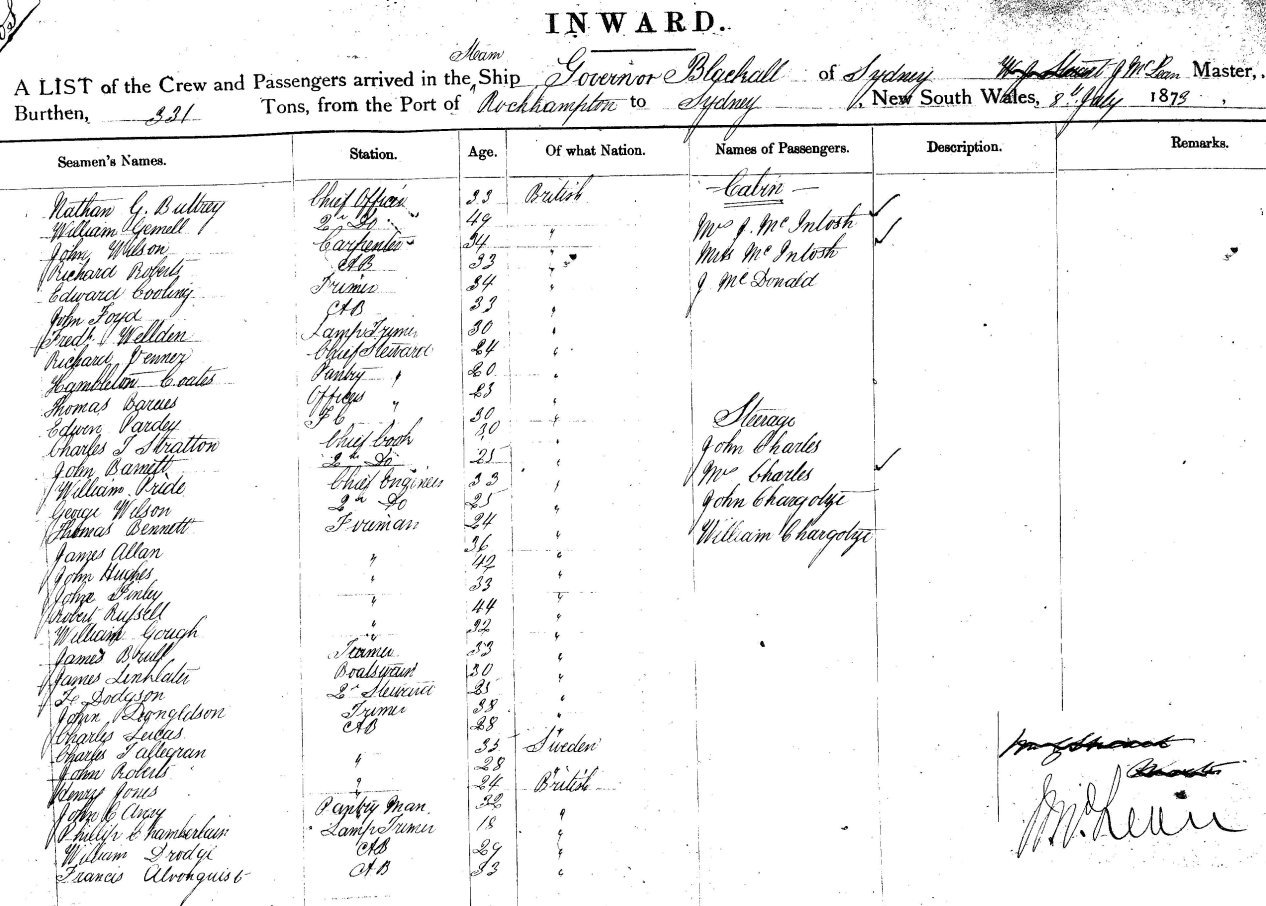 INWARD.
Steam
A LIST of the Crew and Passengers arrived in the Ship Governor Blackall of Sydney J McLean Master,
Burthen, 331 Tons, from the Port of Rockhampton to Sydney, New South Wales, 8th July 1873,
Seamen's Names. Station. Age. Of what Nation. Names of Passengers. Description. Remarks.
Nathan G. Bulbrey Chief Officer 33 British Cabin
William Gemell 2nd Do 49 " Mrs J. McIntosh
John Wilson Carpenter 34 " Miss McIntosh
Richard Roberts AB 33 " J McDonald
Edward Cooling Trimer 34 "
John Foyd AB 33 "
Fredk Wellden Lamp Trimer 30 "
Richard Venner Chief Steward 24 "
Hambleton Coates Pantry " 20 "
Thomas Barnes Officers " 23 "
Edwin Pardey F C 30 " Steerage
Charles T Stratton Chief Cook 30 " John Charles
John Barnett 2nd Do 25 " Mrs Charles
William Pride Chief Engineer 33 " John Chargolye
George Wilson 2nd Do 25 " William Chargolye
Thomas Bennett Fireman 24 "
James Allan " 36 "
John Hughes " 42 "
John Finley " 33 "
Robert Russell " 44 "
William Gough " 32 "
James Brull Trimer 33 "
James Linklater Boatswain 30 "
F Dodgson 2nd Steward 25 "
John Dongldson Trimer 38 "
Charles Lucas AB 28 "
Charles Tallegran " 35 Sweden
John Roberts " 28 "
Henry Jones " 24 British
John C Avery Pantry Man 32 "
Phillip Chamberlain Lamp Trimer 18 "
William Drodge AB 29 "
Francis Alvonquist AB 33 "
J McLean